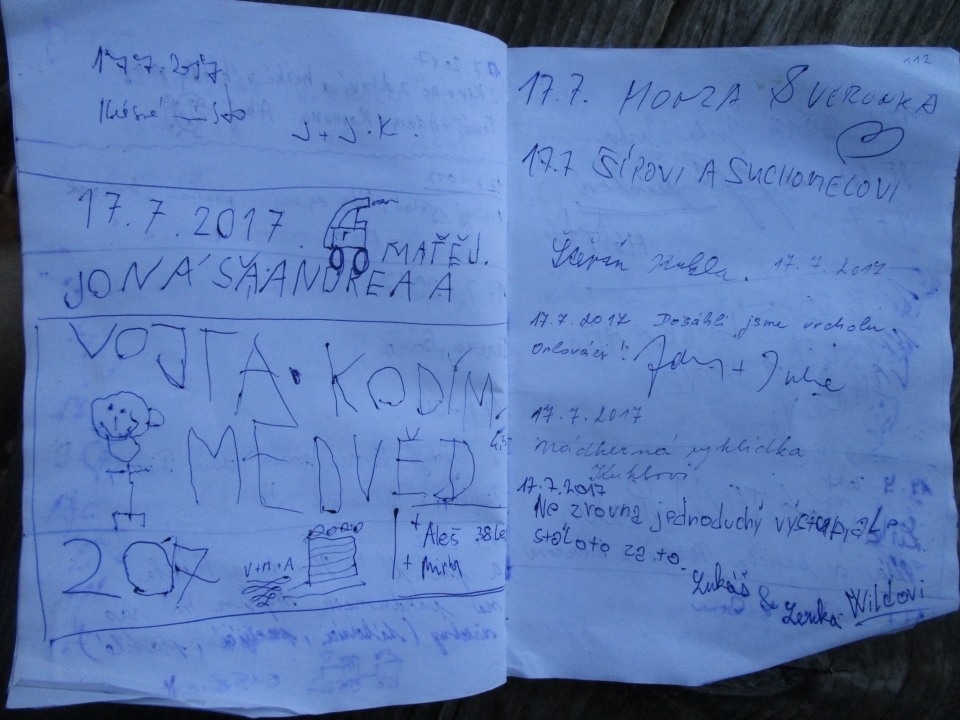 17.7.2017
Krásné místo
J + J. K.
17.7.2017
MATĚJ.
JONÁŠ A ANDREA A
VOJTA. KODÍM.
MEDVĚD
207
V+M+A
+ Aleš 38 let
+ Mirka
112
17.7. HONZA S VERUNKA
17.7 ŠÍPOVI A SUCHOMELOVI
Štěpán 17.7.2017
17.7.2017 Dosáhli jsme vrcholu.
Orlováci! Jan + Julie
17.7.2017
Nádherná vyhlídka
Kuklovi
17.7.2017
Ne zrovna jednoduchý výstup, ale
stálo to za to.
Lukáš & Lenka Wildovi